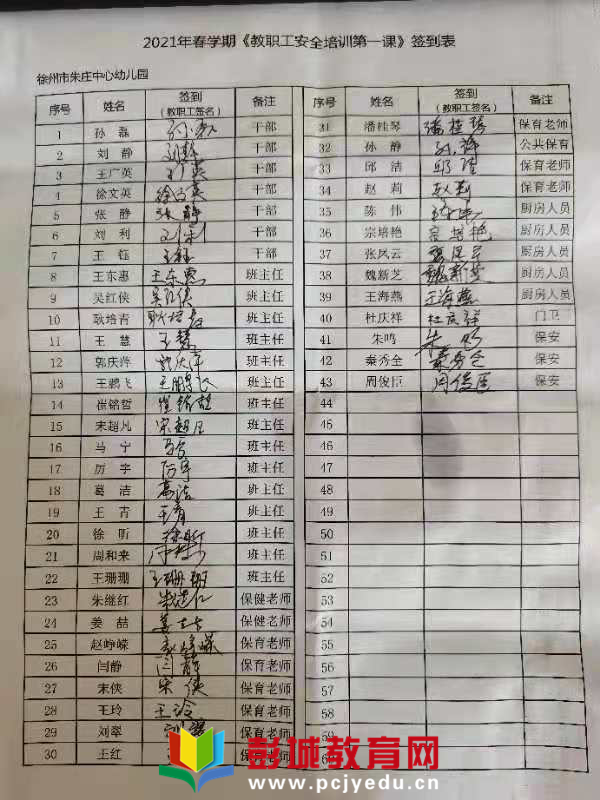 2021年春学期《教职工安全培训第一课》签到表
徐州市朱庄中心幼儿园
序号 姓名 签到(教职工签名) 备注
1 孙磊 孙磊 干部
2 刘静 刘静 干部
3 王广英 王广英 干部
4 徐文英 徐文英 干部
5 张静 张静 干部
6 刘利 刘利 干部
7 王钰 王钰 干部
8 王东惠 王东惠 班主任
9 吴红侠 吴红侠 班主任
10 耿培青 耿培青 班主任
11 王慧 王慧 班主任
12 郭庆萍 郭庆萍 班主任
13 王鹏飞 王鹏飞 班主任
14 崔铭哲 崔铭哲 班主任
15 宋超凡 宋超凡 班主任
16 马宁 马宁 班主任
17 厉宇 厉宇 班主任
18 葛洁 葛洁 班主任
19 王青 王青 班主任
20 徐昕 徐昕 班主任
21 周和来 班主任
22 王珊珊 王珊珊 班主任
23 朱继红 朱继红 保健老师
24 姜喆 姜喆 保健老师
25 赵峥嵘 赵峥嵘 保育老师
26 闫静 闫静 保育老师
27 宋侠 宋侠 保育老师
28 王玲 王玲 保育老师
29 刘翠 刘翠 保育老师
30 王红 保育老师
序号 姓名 签到(教职工签名) 备注
31 潘桂琴 潘桂琴 保育老师
32 孙静 孙静 公共保育
33 邱洁 邱洁 保育老师
34 赵莉 赵莉 保育老师
35 陈伟 陈伟 厨房人员
36 宗培艳 宗培艳 厨房人员
37 张凤云 张凤云 厨房人员
38 魏新芝 魏新芝 厨房人员
39 王海燕 王海燕 厨房人员
40 杜庆祥 杜庆祥 门卫
41 朱鸣 朱鸣 保安
42 秦秀全 秦秀全 保安
43 周俊臣 周俊臣 保安
44
45
46
47
48
49
50
51
52
53
54
55
56
57
58
59
彭城教育网
www.pcjyedu.cn